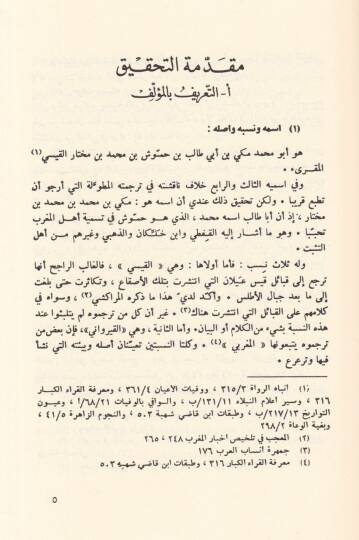 مقدّمة التحقيق
أ - التعريف بالمؤلّف
(١) اسمه ونسبه وأصله :
هو أبو محمد مكي بن أبي طالب بن حمّوش بن محمد بن مختار القيسي (١)
المقرىء ٠
وفي اسميه الثالث والرابع خلاف ناقشته في ترجمته المطوّلة التي أرجو أن
تطبع قريبا ٠ ولكن تحقيق ذلك عندي أن اسمه هو : مكي بن محمد بن محمد بن
مختار ، إذ أن أبا طالب اسمه محمد ، الذي هو حمّوش في تسمية أهل المغرب
تحبّبا ٠ وهو ما أشار إليه القفطي وابن خلّكان والذهبي وغيرهم من أهل
التثبت ٠
وله ثلاث نِسب : فأما أولاها : وهي « القيسي » ، فالغالب الراجح أنها
ترجع إلى قبائل قيس عَيلان التي انتشرت بتلك الأصقاع ، وتكاثرت حتى بلغت
إلى ما بعد جبال الأطلس ٠ وأكّد لديّ هذا ما ذكره المراكشي (٢) ، وسواه في
كلامهم على القبائل التي انتشرت هناك (٣) ٠ غير أن كل من ترجموه لم يتلبثوا عند
هذه النسبة بشيء من الكلام أو البيان ٠ وأما الثانية ، وهي « القيرواني » ، فإن بعض من
ترجموه يتبعونها « المغربي » (٤) ٠ وكلتا النسبتين تعيّنان أصله وبيئته التي نشأ
فيها وترعرع ٠
(١) انباه الرواة ٣١٥/٣ ، ووفيات الاعيان ٣٦١/٤ ، ومعرفة القراء الكبار
٣١٦ ، وسير اعلام النبلاء ١٣١/١١/ب ، والوافي بالوفيات ٦٨/٢١/أ ، وعيون
التواريخ ٢١٧/١٣/ب ، وطبقات ابن قاضي شهبة ٥٠٣ ، والنجوم الزاهرة ٤١/٥ ،
وبغية الوعاة ٢٩٨/٢
(٢) المعجب في تلخيص اخبار المغرب ٢٤٨ ، ٢٦٥
(٣) جمهرة أنساب العرب ١٧٦
(٤) معرفة القراء الكبار ٣١٦ ، وطبقات ابن قاضي شهبة ٥٠٣
٥